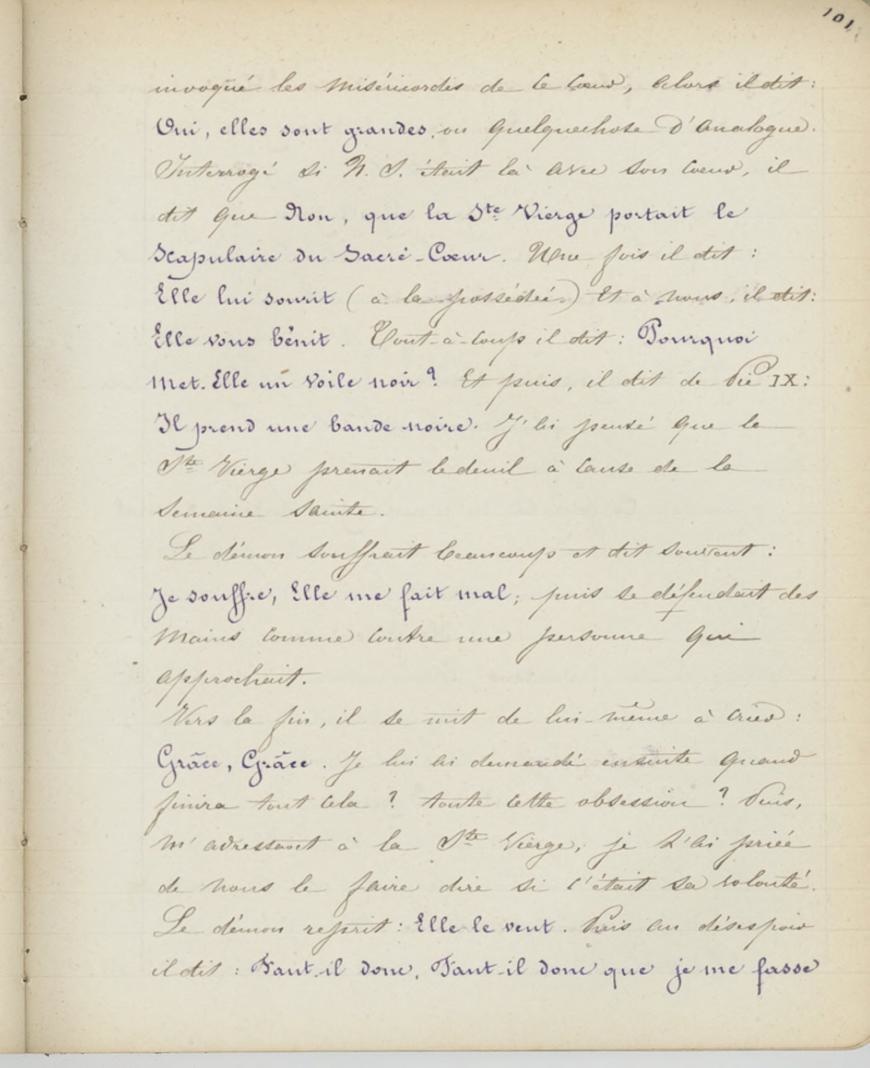 101
invoqué les miséricordes de ce Cœur, Alors il dit :
Oui, elles sont grandes, ou quelquechose d'analogue.
Interrogé si N. S. était là avec son Cœur, il
dit que Non, que la Ste Vierge portait le
Scapulaire du Sacré-Cœur. Une fois il dit :
Elle lui sourit (à la possédée) Et à nous, il dit :
Elle vous bénit. Tout-à-coup il dit : Pourquoi
met-Elle un voile noir ? Et puis, il dit de Pie IX :
Il prend une bande noire. J'ai pensé que la
Ste Vierge prenait le deuil à cause de la
Semaine Sainte.
Le démon souffrait beaucoup et dit souvent :
Je souffre, Elle me fait mal ; puis se défendait des
mains comme contre une personne qui
approchait.
Vers la fin, il se mit de lui-même à crier :
Grâce, Grâce. Je lui ai demandé ensuite quand
finira tout cela ? toute cette obsession ? Puis,
m'adressant à la Ste Vierge, je l'ai priée
de nous le faire dire si c'était sa volonté.
Le démon reprit : Elle le veut. Puis au désespoir
il dit : Faut-il donc, Faut-il donc que je me fasse